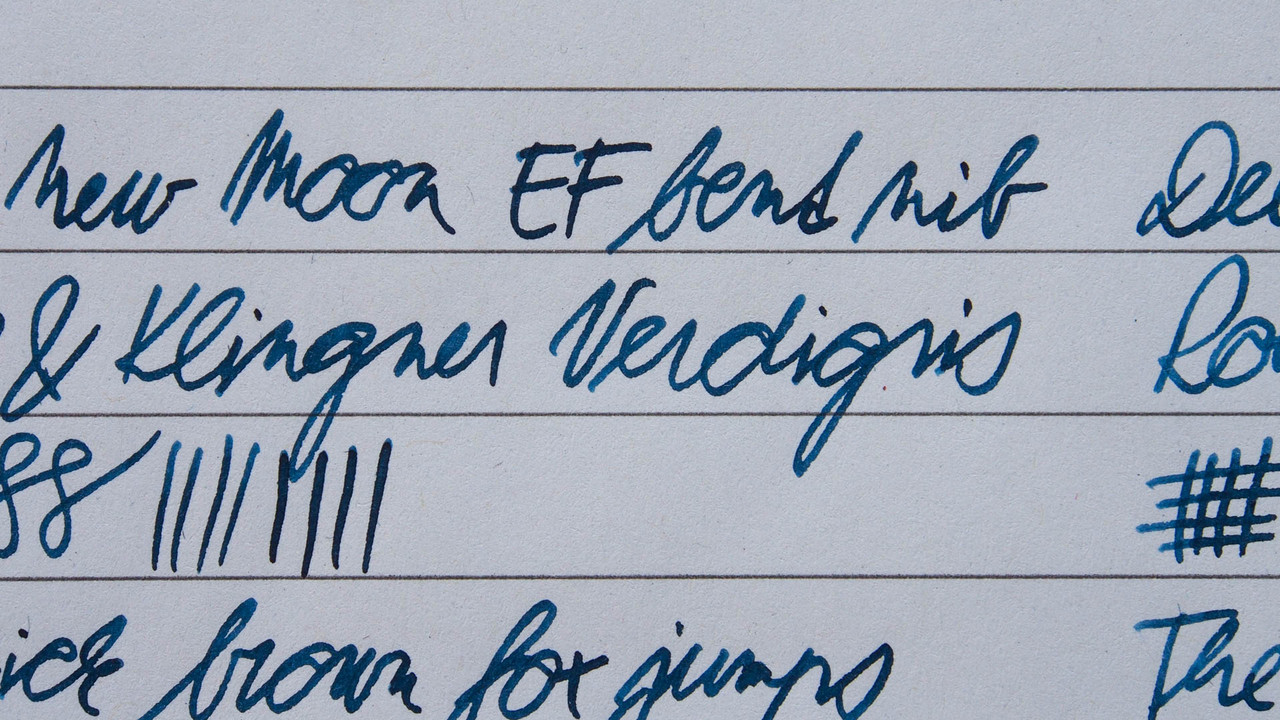 new Moon EF bend nib De
& Klingner Verdigris Ro
ick brown fox jumps The